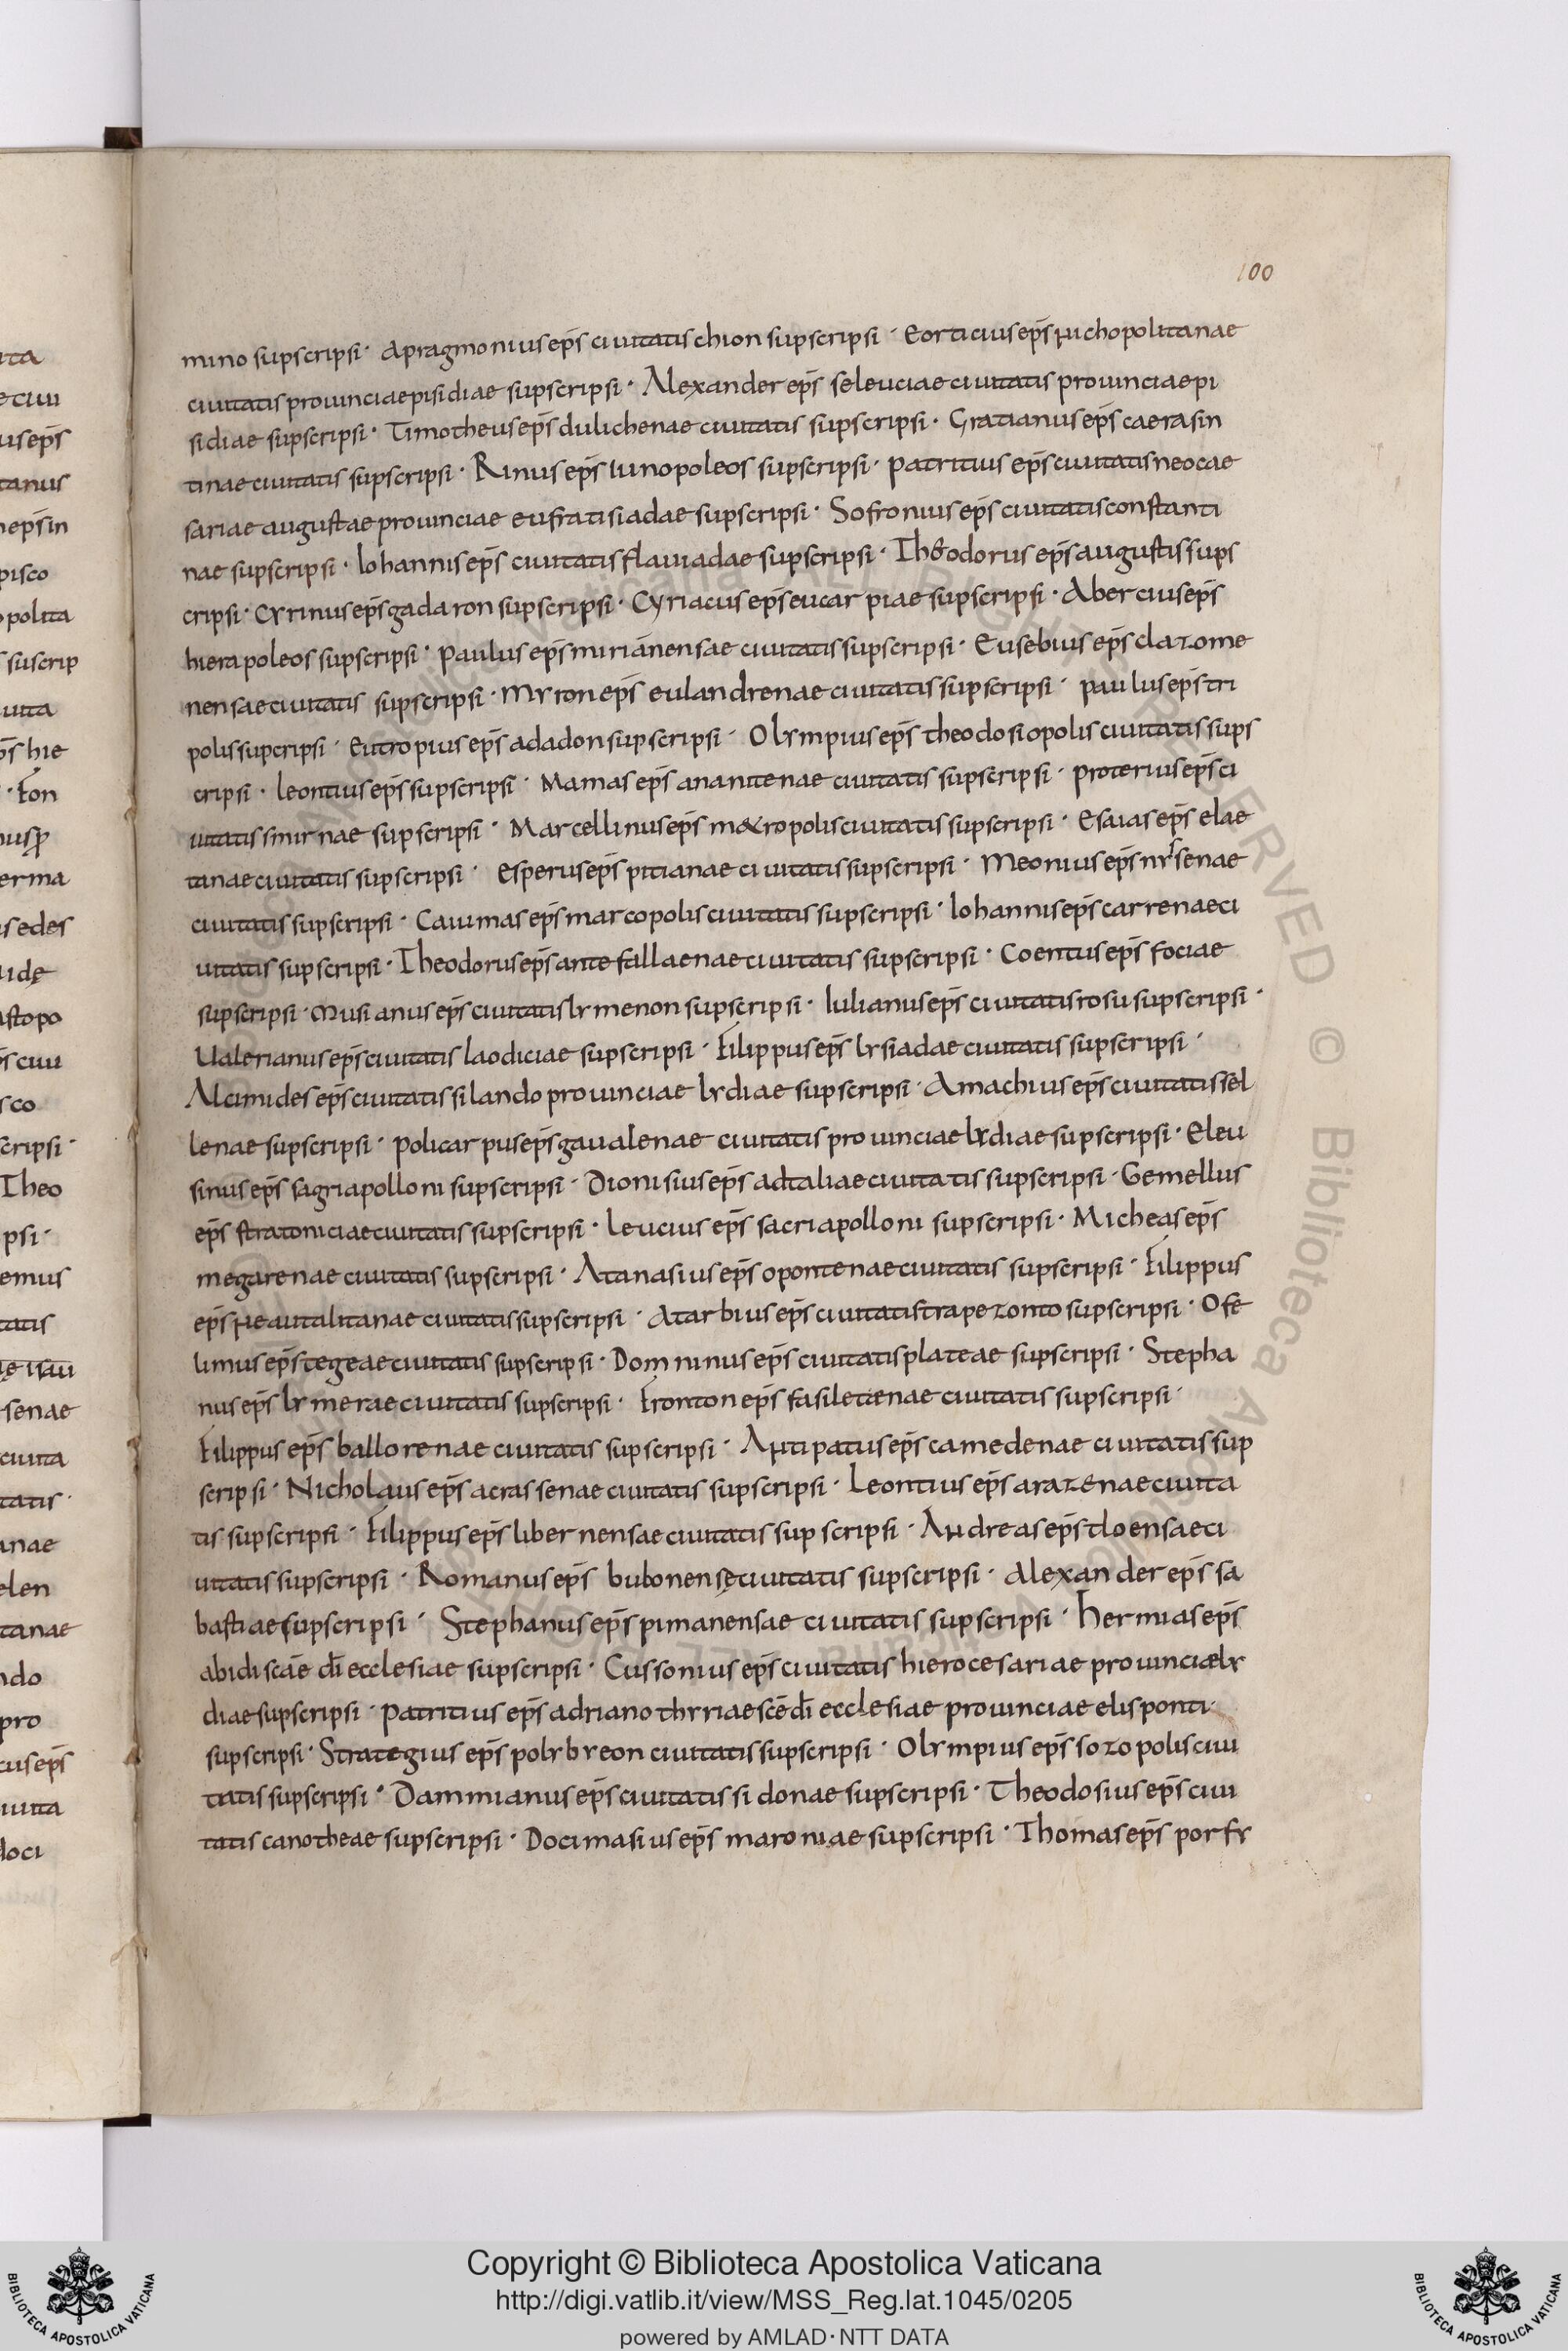 100
mino supscripsi · apragmonius ep̄s ciuitatis chion supscripsi · Eorticius ep̄s nichopolitanae
ciuitatis prouinciae pisidiae supscripsi · Alexander ep̄s seleuciae ciuitatis prouinciae pi
sidiae supscripsi · Timotheus ep̄s dulichenae ciuitatis supscripsi · Gratianus ep̄s caerasin
tinae ciuitatis supscripsi · Rinus ep̄s iunopoleos supscripsi · patritius ep̄s ciuitatis neocae
sariae augustae prouinciae eufratisiadae supscripsi · Sofronius ep̄s ciuitatis constanti
nae supscripsi · Iohannis ep̄s ciuitatis flauiadae supscripsi · Theodorus ep̄s augustis sups
cripsi · Cyrinus ep̄s gadaron supscripsi · Cyriacus ep̄s eucarpiae supscripsi · Abercius ep̄s
hierapoleos supscripsi · paulus ep̄s mirianensae ciuitatis supscripsi · Eusebius ep̄s clazome
nensae ciuitatis supscripsi · Myron ep̄s eulandrenae ciuitatis supscripsi · paulus ep̄s tri
polis supcripsi · Eutropius ep̄s adadon supscripsi · Olympius ep̄s theodosiopolis ciuitatis sups
cripsi · leontius ep̄s supscripsi · Mamas ep̄s ananitenae ciuitatis supscripsi · proterius ep̄s ci
uitatis smirnae supscripsi · Marcellinus ep̄s metropolis ciuitatis supscripsi · Esaias ep̄s elae
tanae ciuitatis supscripsi · esperus ep̄s pitianae ciuitatis supscripsi · Meonius ep̄s nysenae
ciuitatis supscripsi · Caiumas ep̄s marcopolis ciuitatis supscripsi · Iohannis ep̄s carrenae ci
uitatis supscripsi · Theodorus ep̄s antefallaenae ciuitatis supscripsi · Coentus ep̄s fociae
supscripsi · Musianus ep̄s ciuitatis lymenon supscripsi · Iulianus ep̄s ciuitatis rosu supscripsi ·
Ualerianus ep̄s ciuitatis laodiciae supscripsi · Filippus ep̄s lysiadae ciuitatis supscripsi ·
Alcimides ep̄s ciuitatis silando prouinciae lydiae supscripsi · Amachius ep̄s ciuitatis sel
lenae supscripsi · policarpus ep̄s gaualenae ciuitatis prouinciae lydiae supscripsi · Eleu
sinus ep̄s sagriapolloni supscripsi · Dionisius ep̄s adtaliae ciuitatis supscripsi · Gemellus
ep̄s stratoniciae ciuitatis supscripsi · leucius ep̄s sacriapolloni supscripsi · Micheas ep̄s
megarenae ciuitatis supscripsi · Atanasius ep̄s opontenae ciuitatis supscripsi · Filippus
ep̄s neauitalitanae ciuitatis supscripsi · Atarbius ep̄s ciuitatis trapezonto supscripsi · Ofe
limus ep̄s tegeae ciuitatis supscripsi · Domninus ep̄s ciuitatis plateae supscripsi · Stepha
nus ep̄s lymerae ciuitatis supscripsi · Fronton ep̄s fasiletienae ciuitatis supscripsi ·
Filippus ep̄s ballorenae ciuitatis supscripsi · Antipatus ep̄s camedenae ciuitatis sup
scripsi · Nicholaus ep̄s acrassenae ciuitatis supscripsi · Leontius ep̄s arazenae ciuita
tis supscripsi · Filippus ep̄s libernensae ciuitatis supscripsi · Andreas ep̄s tloensae ci
uitatis supscripsi · Romanus ep̄s bubonensę ciuitatis supscripsi · Alexander ep̄s sa
bastiae supscripsi · Stephanus ep̄s pimanensae ciuitatis supscripsi · hermias ep̄s
abidi scāe dī ecclesiae supscripsi · Cussonius ep̄s ciuitatis hierocesariae prouinciæ ly
diae supscripsi · patritius ep̄s adrianothyriae scē dī ecclesiae prouinciae elisponti·
supscripsi · Strategius ep̄s polybreon ciuitatis supscripsi · Olympius ep̄s sozopolis ciui
tatis supscripsi · Dammianus ep̄s ciuitatis sidonae supscripsi · Theodosius ep̄s ciui
tatis canotheae supscripsi · Docimasius ep̄s maroniae supscripsi · Thomas ep̄s porfy
Copyright © Biblioteca Apostolica Vaticana
http://digi.vatlib.it/view/MSS_Reg.lat.1045/0205
powered by AMLAD·NTT DATA